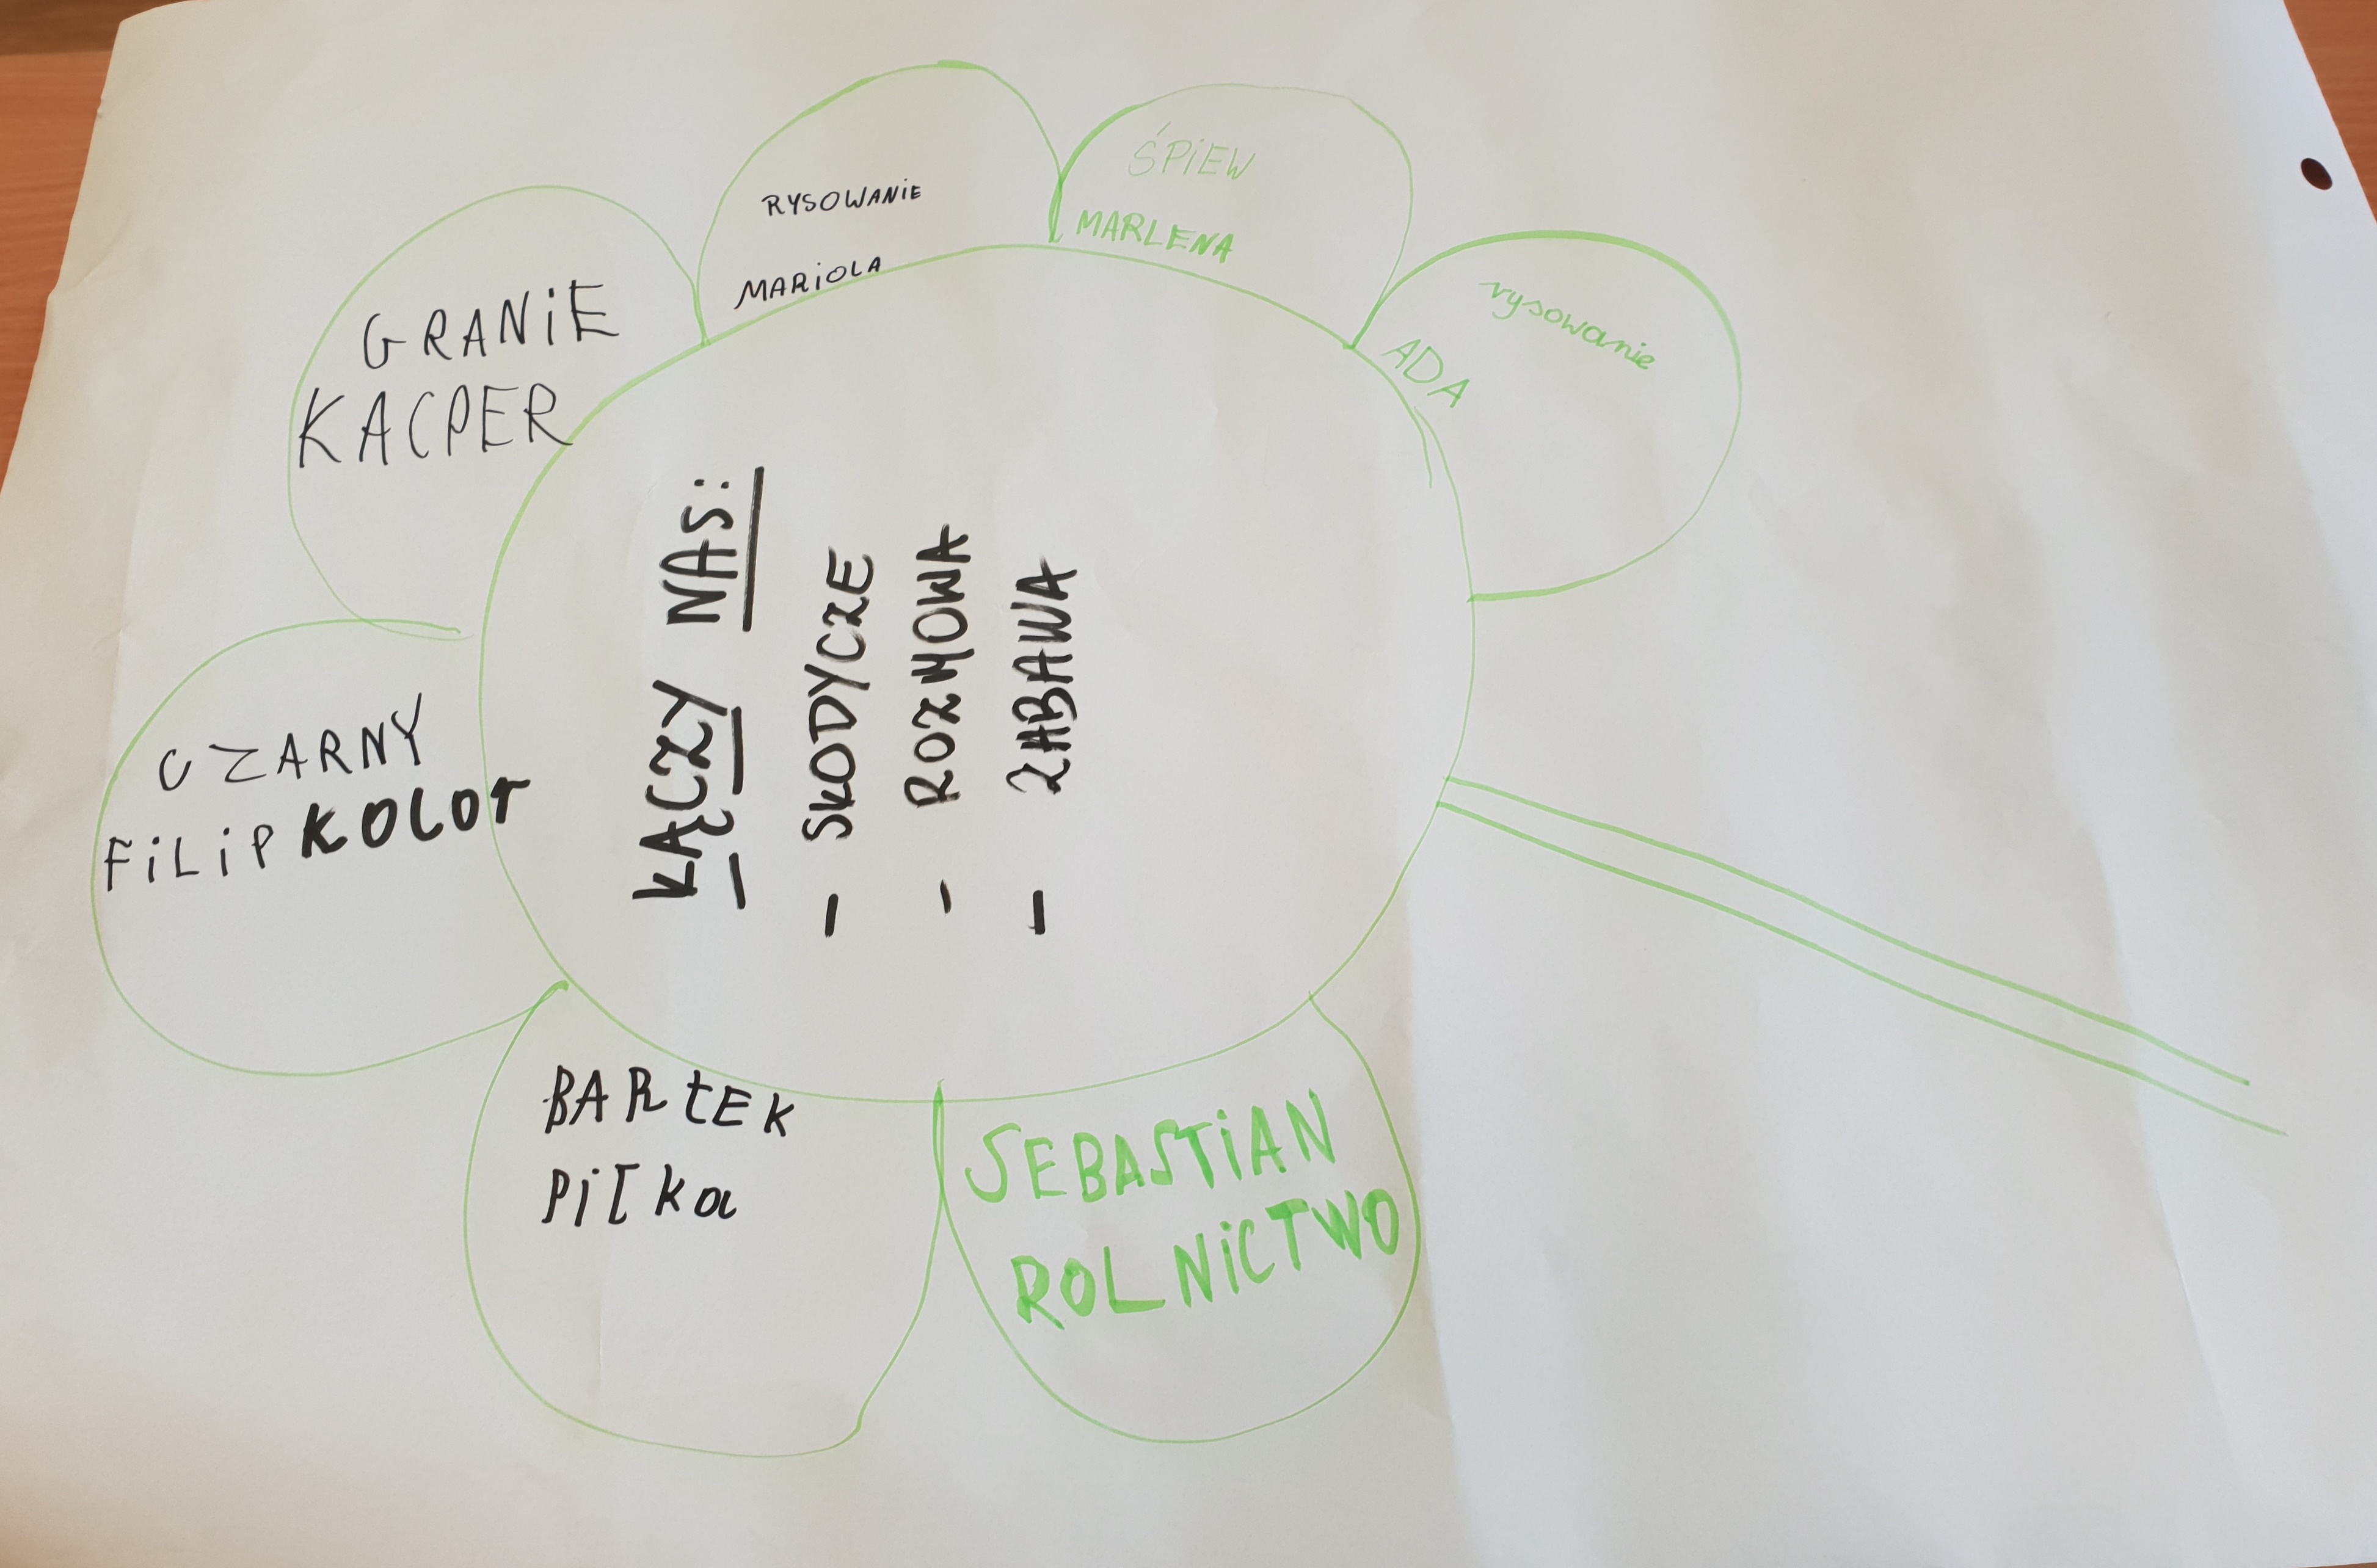 ŁĄCZY NAS:
- SŁODYCZE
- ROZMOWA
- ZABAWA
CZARNY
FiLiP KOLOr
GRANiE
KACPER
RYSOWANiE
MARiOLA
ŚPiEW
MARLENA
rysowanie
ADA
BARtEK
PiŁka
SEBASTiAN
ROLNiCTWO